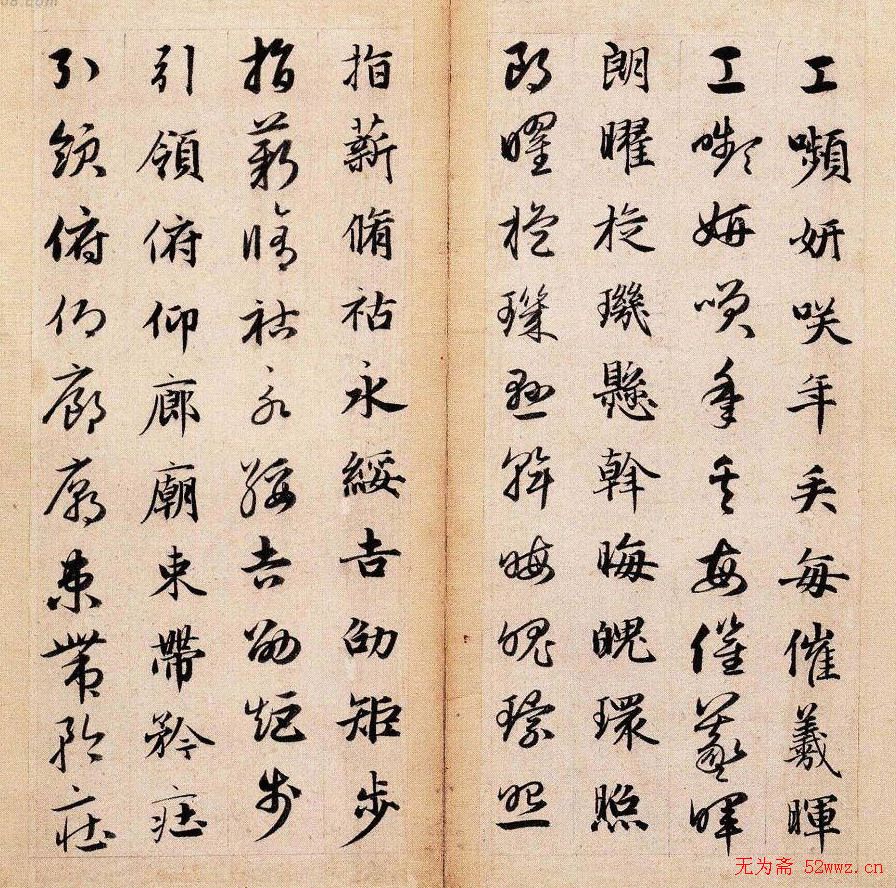 工嚬妍咲年矢每催羲暉
工嚬妍咲年矢每催羲暉
朗曜旋璣懸斡晦魄環照
朗曜旋璣懸斡晦魄環照
指薪脩祜永綏吉劭矩步
指薪脩祜永綏吉劭矩步
引領俯仰廊廟束帶矜莊
引領俯仰廊廟束帶矜莊
无为斋 52wwz.cn